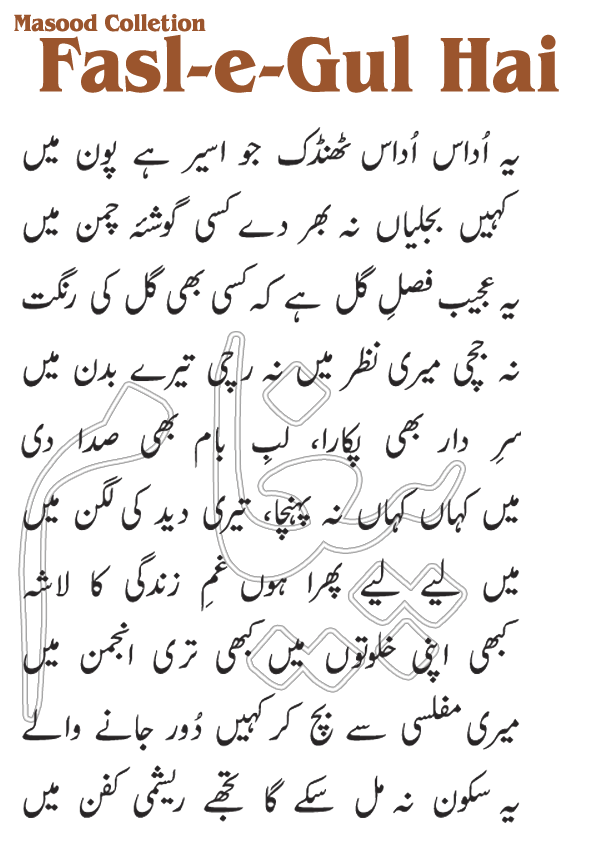 Masood Colletion
Fasl-e-Gul Hai
یہ اُداس اُداس ٹھنڈک جو اسیر ہے پون میں
کہیں بجلیاں نہ بھر دے کسی گوشئہ چمن میں
یہ عجیب فصلِ گل ہے کہ کسی بھی گل کی رنگت
نہ جچی میری نظر میں نہ رچی تیرے بدن میں
سرِ دار بھی پکارا، لبِ بام بھی صدا دی
میں کہاں کہاں نہ پہنچا، تیری دید کی لگن میں
میں لیے لیے پھرا ہوں غمِ زندگی کا لاشہ
کبھی اپنی خلوتوں میں کبھی تری انجمن میں
میری مفلسی سے بچ کر کہیں دُور جانے والے
یہ سکون نہ مل سکے گا تجھے ریشمی کفن میں
پیغام